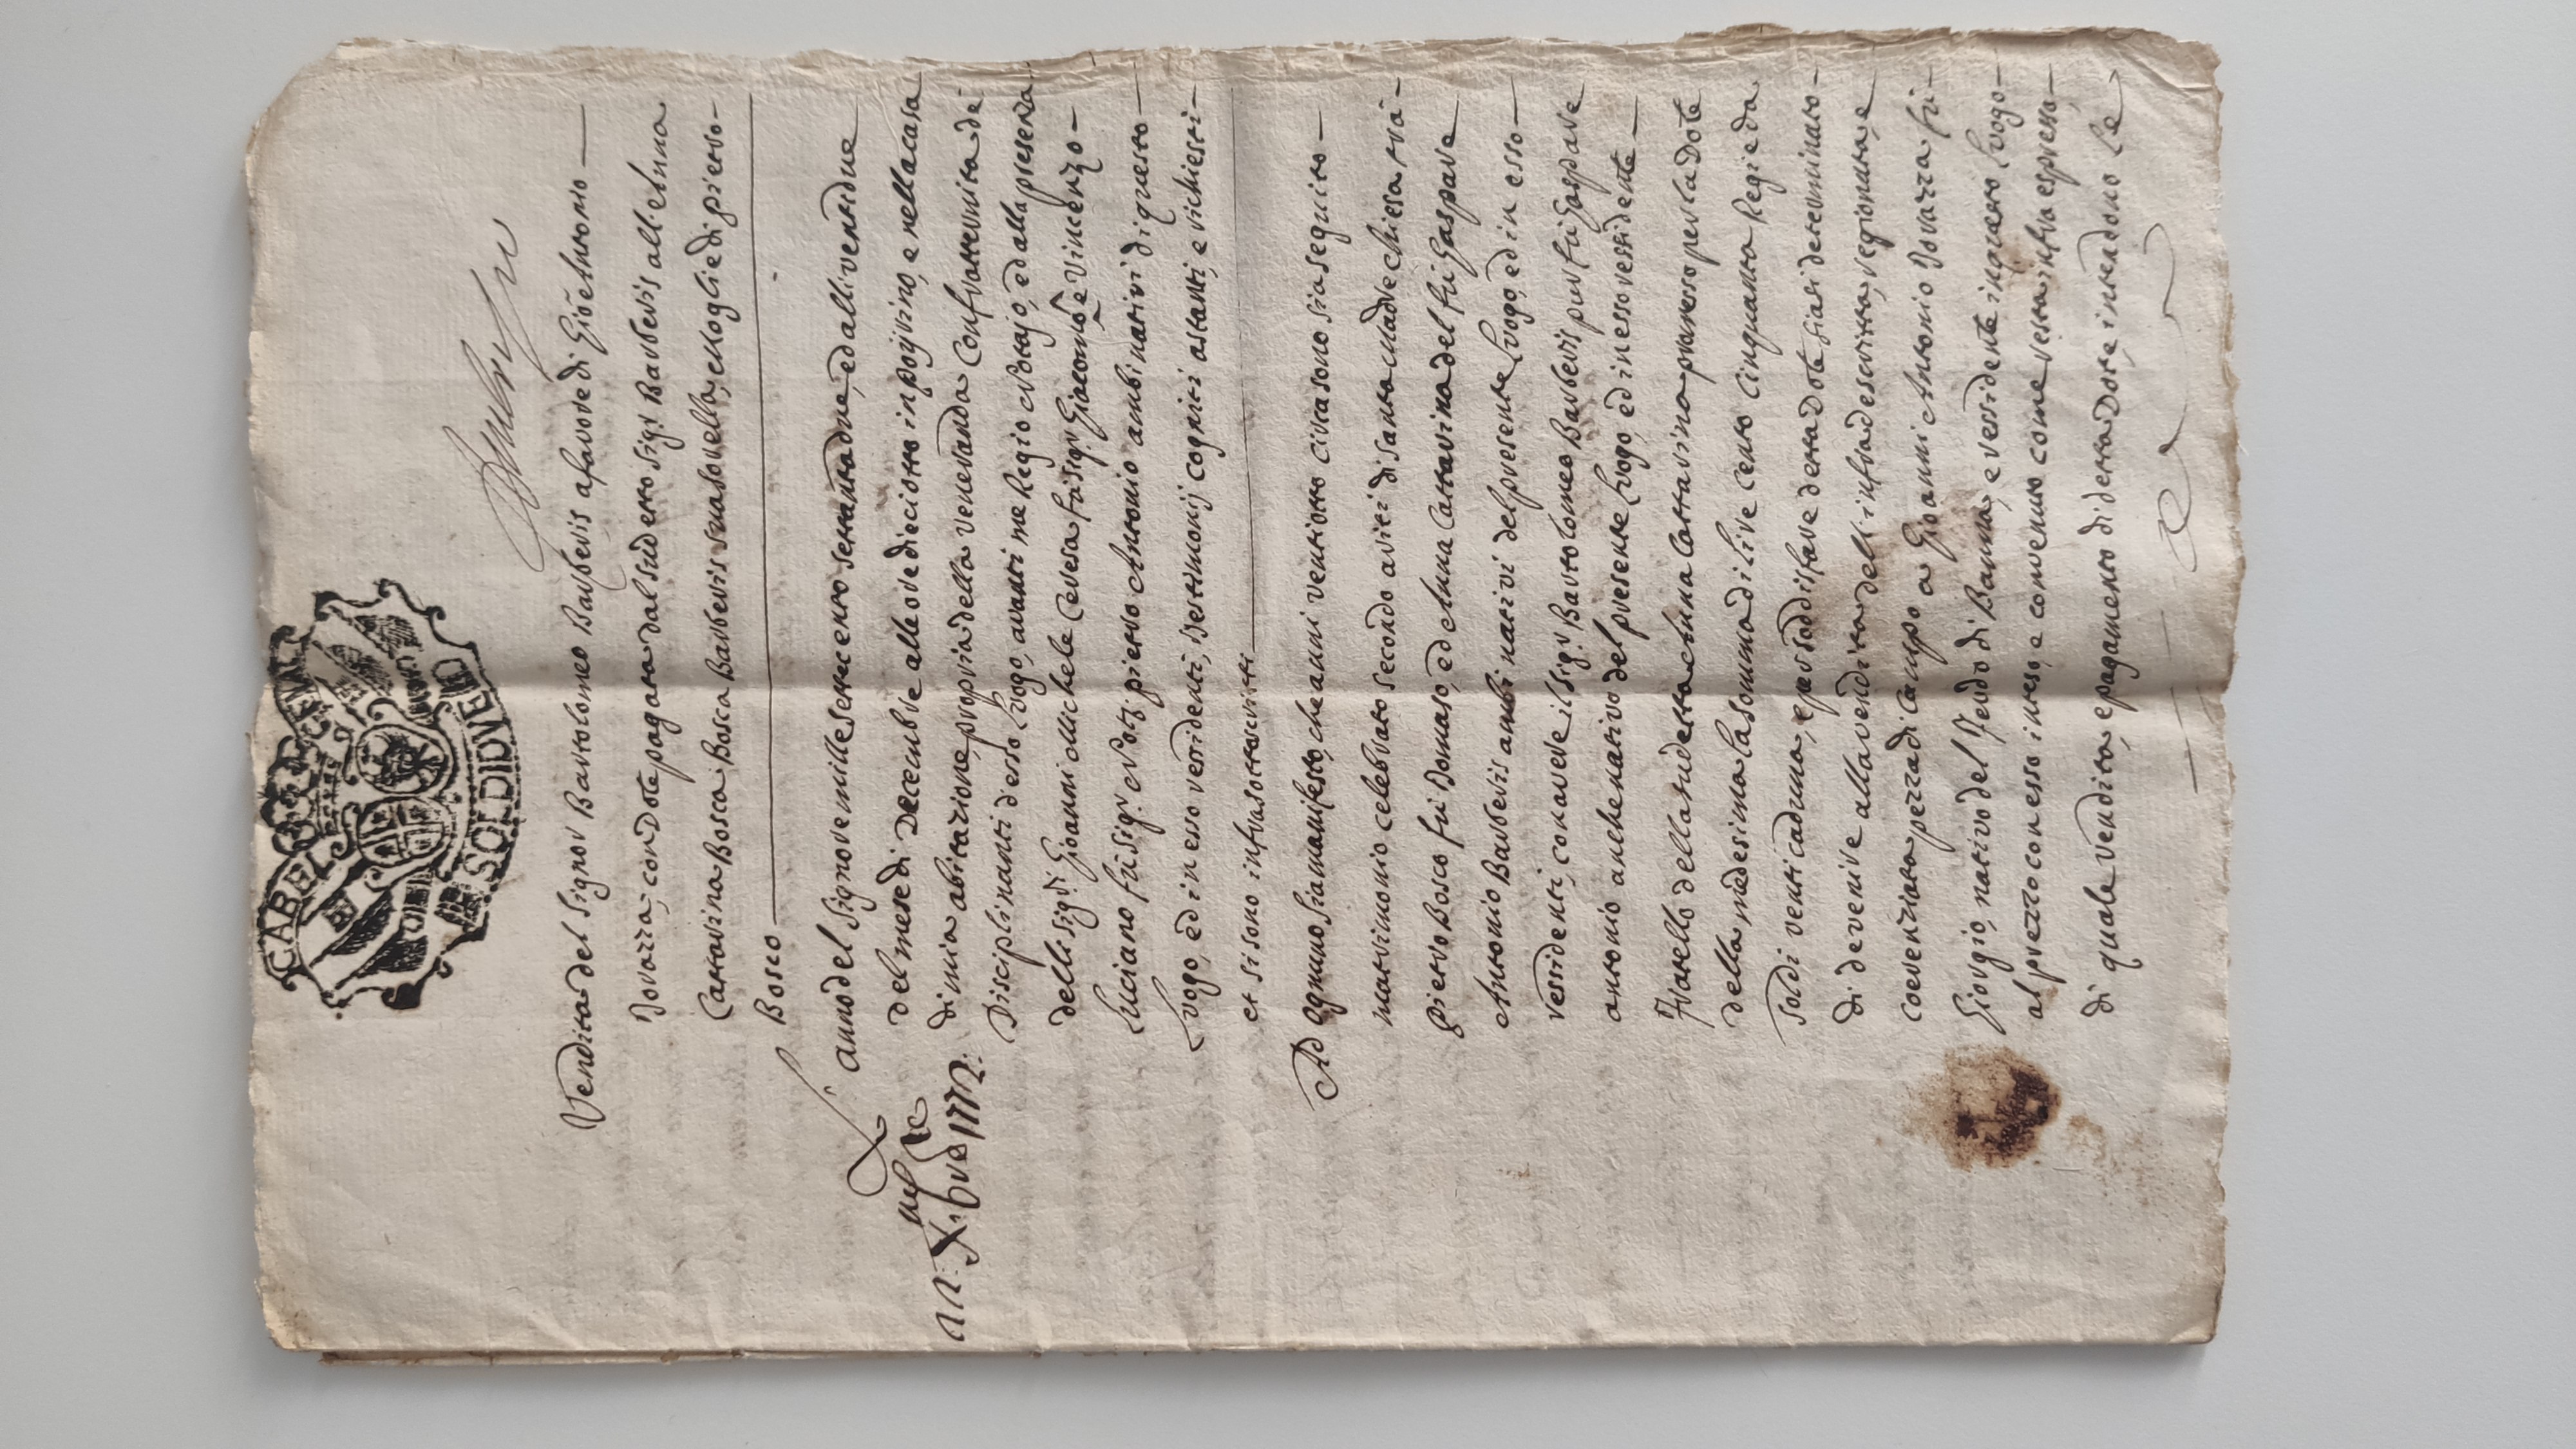 CABEL GENAL
SOLDI DVE 10
Vendita del Signor Bartolomeo Barberis a favore di Gioẽ Antonio
Bovazza, con Dote pagata dal sudetto Sig.r Barberis all'Anna
Cattarina Bosca Bosca Barberis sua sorella, e Moglie di pietro
Bosco
L'anno del Signore mille settecento settantadue, ed alli ventidue
del mese di Decembre alle ore dieciotto in pogivino, e nella casa
di mia abitazione, propria della Veneranda Confratternita de'
Disciplinanti d'esso Luogo, avanti me Regio Notajo, ed alla presenza
delli sig.ri Gioanni Michele Ceresa fu Sig.r Giacomo, e Vincenzo
Luciano fu Sig.r Not.o pietro Antonio ambi nativi di questo
Luogo, ed in esso ressidenti, testimonij cogniti astanti, e richiesti
et si sono infrasottoscritti
Ad ognuno sia manifesto, che anni ventiotto circa sono sia seguito
matrimonio celebrato secondo a riti di santa Madre Chiesa trà
pietro Bosco fu Tomaso, ed Anna Cattarina del fù Gaspare
Antonio Barberis ambi nativi del presente Luogo, ed in esso
ressidenti, con avere il Sig.r Bartolomeo Barberis pur fù Gaspare
antonio anche nativo del presente Luogo, ed in esso ressidente
Fratello della sudetta Anna Cattarina promesso per la Dote
della medesima la somma di Live Cento Cinquanta Regie da
soldi venti caduna, e per soddisfare detta Dote siasi determinato
di devenire alla vendita dell'infradescritta, regionata, e
coerenziata pezza di Campo a Gioanni Antonio Bovazza fù
Giorgio, nativo del Feudo di Banna, e ressidente in questo Luogo
al prezzo con esso inteso, e convenuto come resta infra espresso,
di quale vendita, e pagamento di detta Dote intendono le